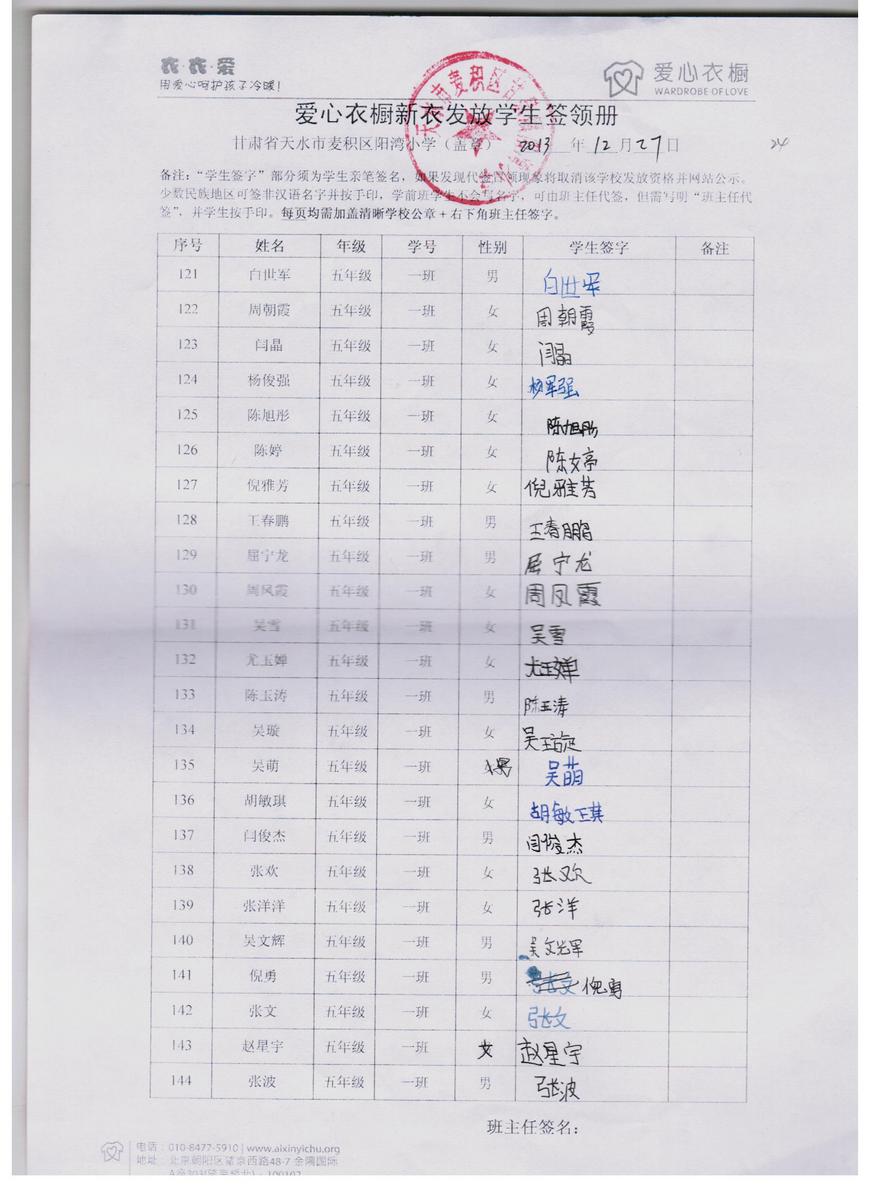 衣·衣·爱
用爱心呵护孩子冷暖!
爱心衣橱
WARDROBE OF LOVE
爱心衣橱新衣发放学生签领册
甘肃省天水市麦积区阳湾小学（盖章） 2013 年 12 月 27 日
24
备注：“学生签字”部分须为学生亲笔签名，如果发现代签冒领现象将取消该学校发放资格并网站公示。
少数民族地区可签非汉语名字并按手印，学前班学生不会写名字，可由班主任代签，但需写明“班主任代
签”，并学生按手印。每页均需加盖清晰学校公章+右下角班主任签字。
序号 姓名 年级 学号 性别 学生签字 备注
121 白世军 五年级 一班 男 白世军
122 周朝霞 五年级 一班 女 周朝霞
123 闫晶 五年级 一班 女 闫晶
124 杨俊强 五年级 一班 女 杨军强
125 陈旭彤 五年级 一班 女 陈旭彤
126 陈婷 五年级 一班 女 陈婷
127 倪雅芳 五年级 一班 女 倪雅芳
128 王春鹏 五年级 一班 男 王春鹏
129 屈宁龙 五年级 一班 男 屈宁龙
130 周凤霞 五年级 一班 女 周凤霞
131 吴雪 五年级 一班 女 吴雪
132 尤玉婵 五年级 一班 女 尤玉婵
133 陈玉涛 五年级 一班 男 陈玉涛
134 吴璇 五年级 一班 女 吴璇
135 吴萌 五年级 一班 男 吴萌
136 胡敏琪 五年级 一班 女 胡敏琪
137 闫俊杰 五年级 一班 男 闫俊杰
138 张欢 五年级 一班 女 张欢
139 张洋洋 五年级 一班 女 张洋
140 吴文辉 五年级 一班 男 吴文辉
141 倪勇 五年级 一班 男 张文 倪勇
142 张文 五年级 一班 女 张文
143 赵星宇 五年级 一班 女 赵星宇
144 张波 五年级 一班 男 张波
班主任签名：
电话：010-8477-5910 | www.aixinyichu.org
地址：北京朝阳区望京西路48-7 金隅国际